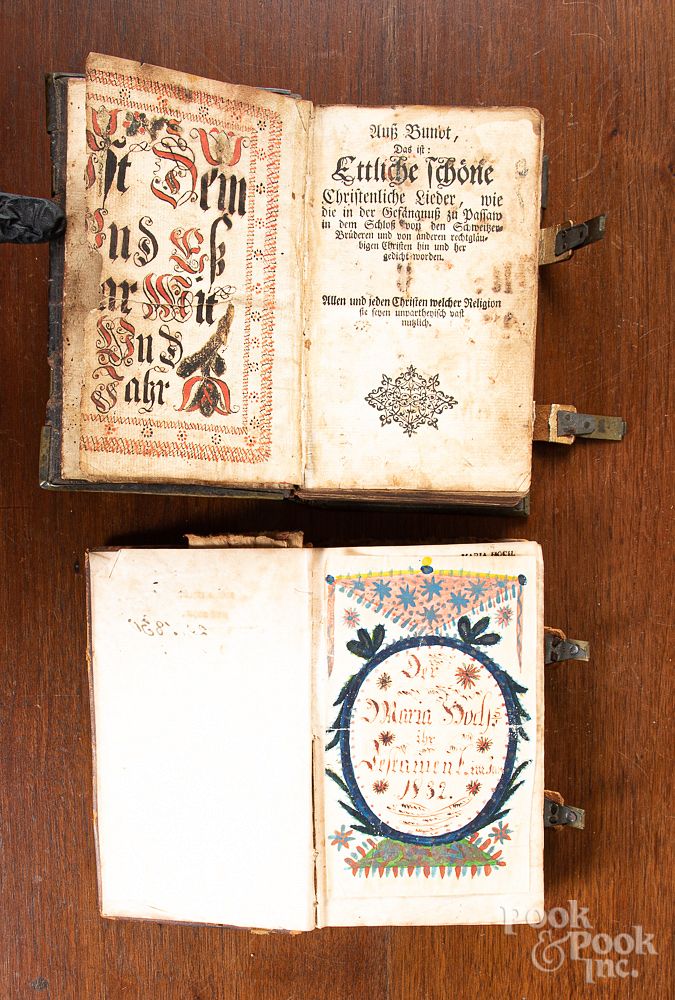 ist Dem
Und Eß
ar Mit
Und
Jahr
Auß Bundt,
Das ist:
Ettliche schöne
Christenliche Lieder, wie
die in der Gefängnuß zu Passaw
in dem Schloß von den Schweitzer-
Brüderen und von anderen rechtgläu-
bigen Christen hin und her
gedicht worden.
Allen und jeden Christen welcher Religion
sie seyen unpartheyisch vast
nutzlich.
MARIA HOCH.
Der
Maria Hoch
ihr
Testament
1832.
Pook
& Pook
Inc.